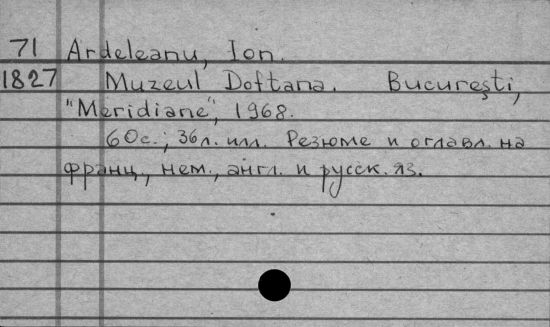 71 Ardeleanu, Ion.
1827 Muzeul Doftana. Bucureşti,
"Meridiane", 1968.
60с.; 36л. илл. Резюме и оглавл. на
франц., нем., англ. и русск. яз.